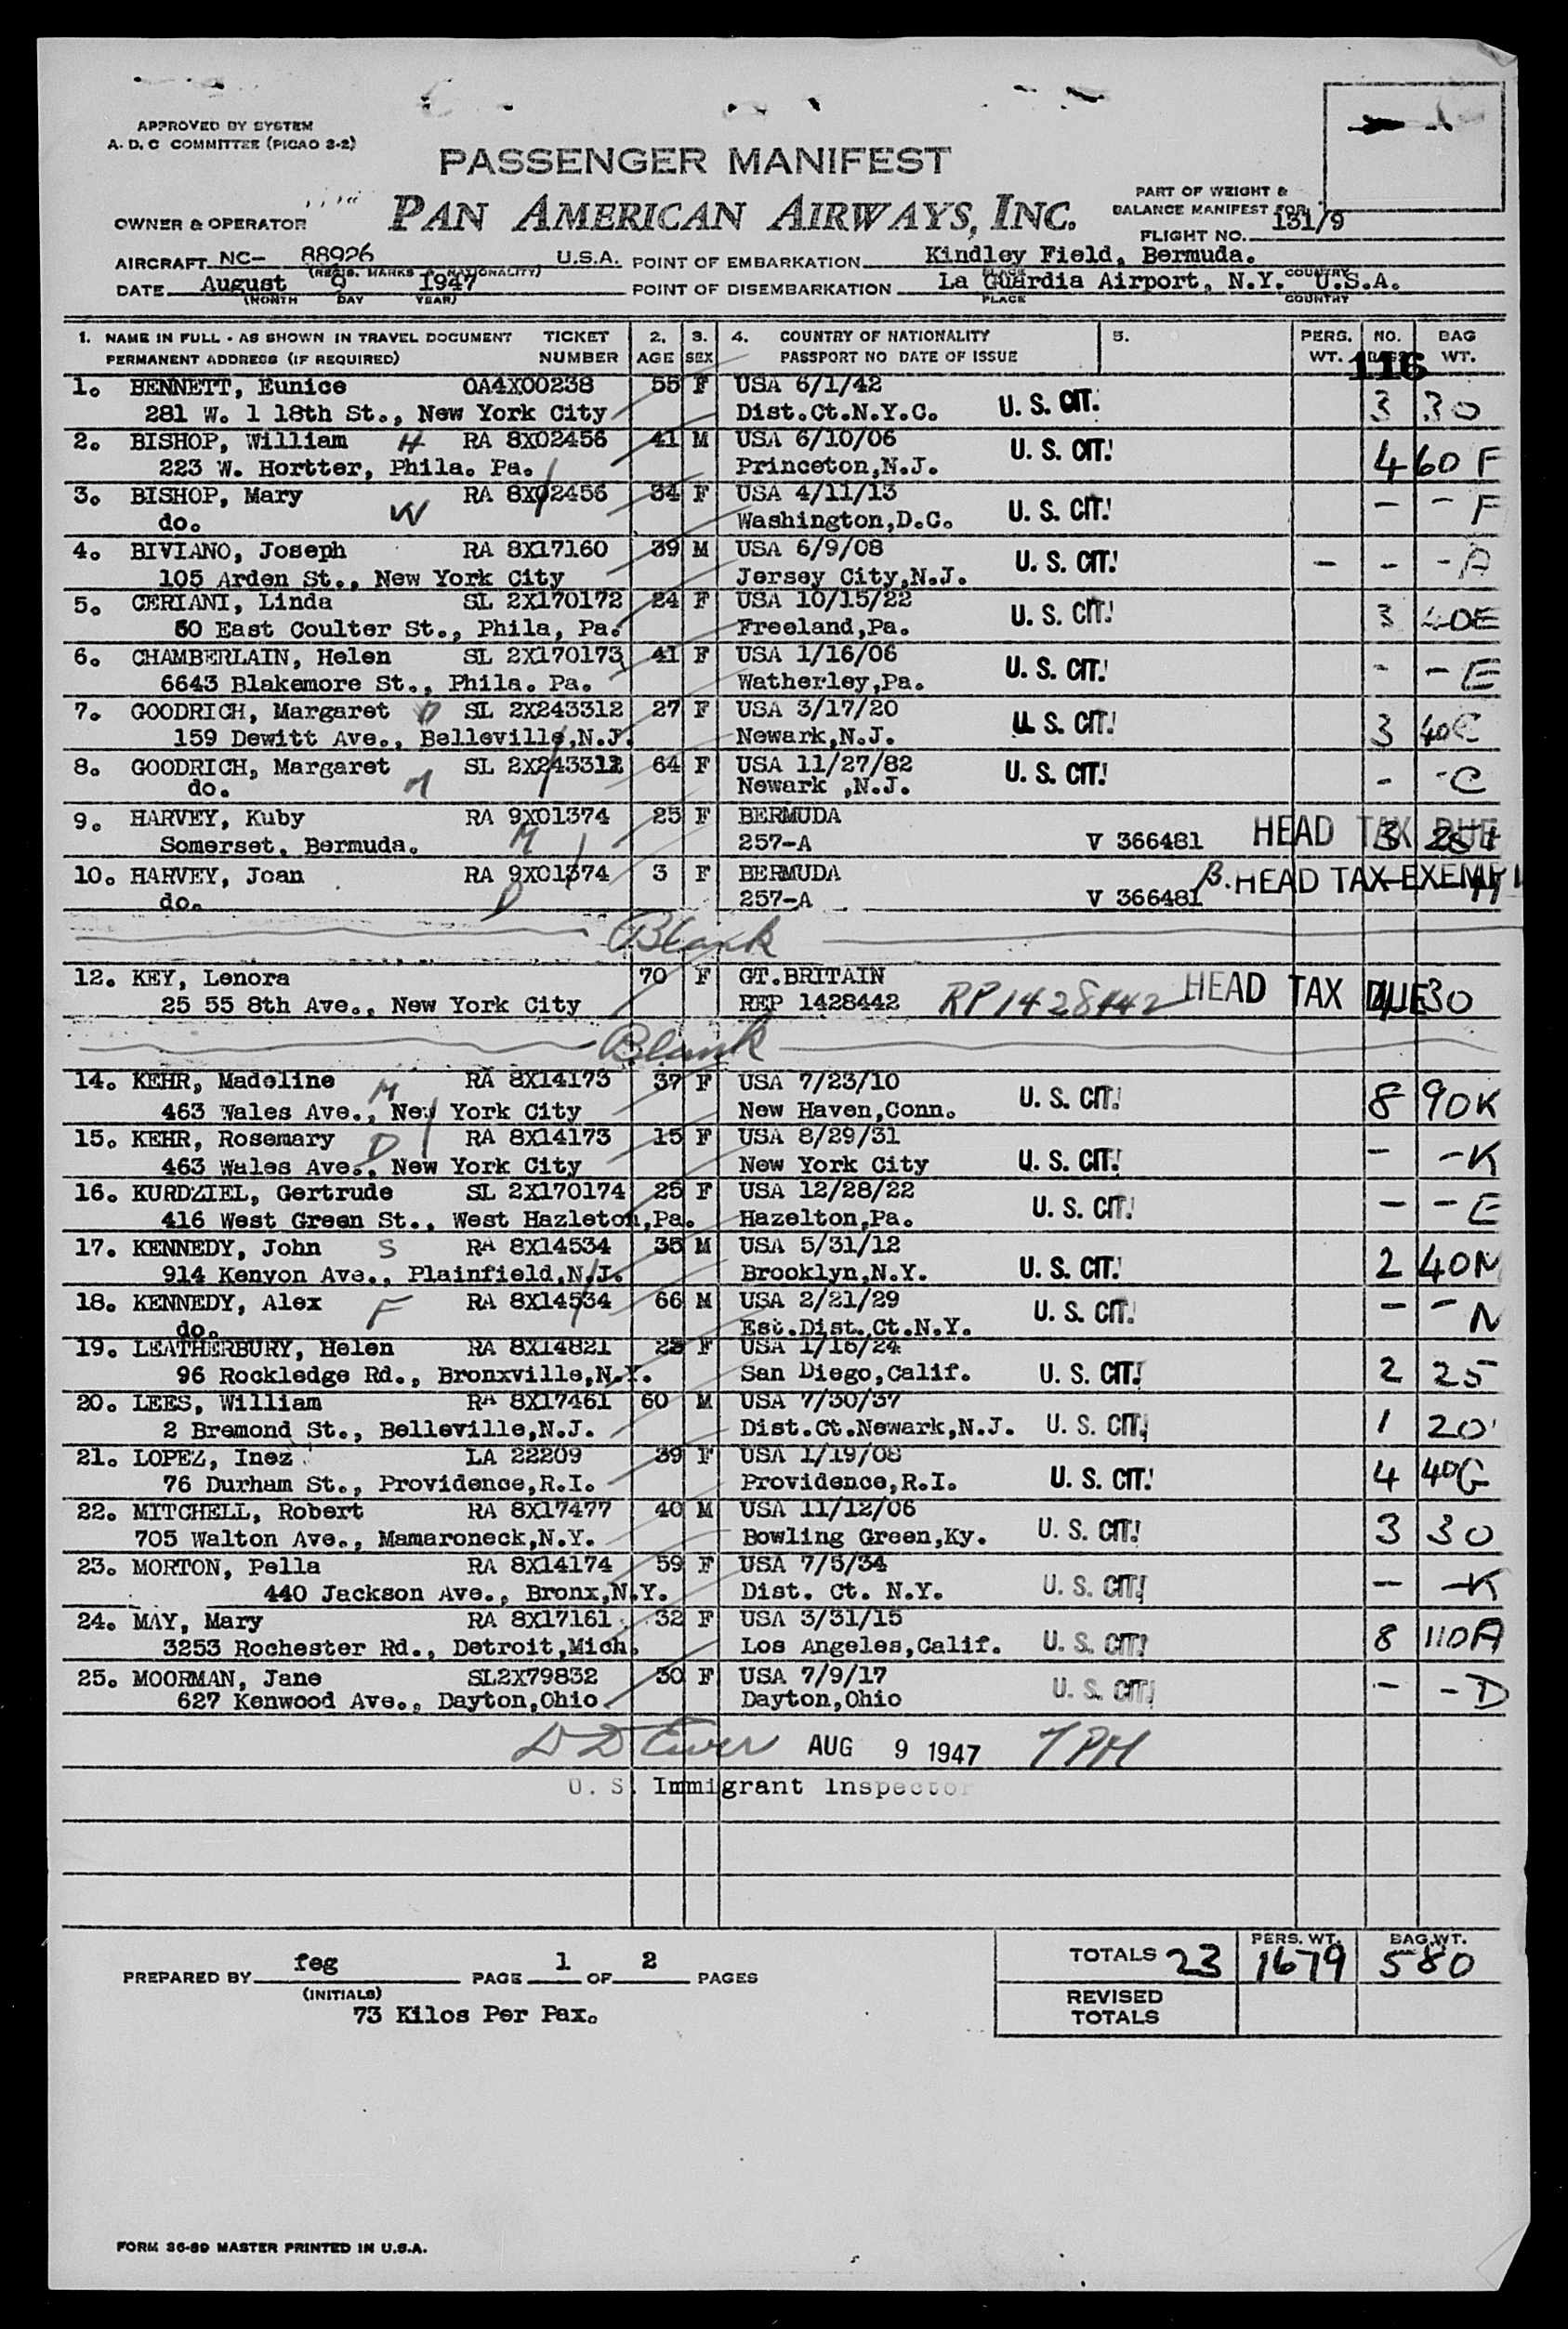 APPROVED BY SYSTEM
A. D. C COMMITTEE (PICAO 2-2)
PASSENGER MANIFEST
PART OF WEIGHT &
BALANCE MANIFEST FOR
OWNER & OPERATOR PAN AMERICAN AIRWAYS, INC.
FLIGHT NO. 131/9
AIRCRAFT NC- 88926 U.S.A. POINT OF EMBARKATION Kindley Field, Bermuda.
(REGIS. MARKS & NATIONALITY) PLACE COUNTRY
DATE August 9 1947 POINT OF DISEMBARKATION La Guardia Airport, N.Y. U.S.A.
(MONTH DAY YEAR) PLACE COUNTRY
1. NAME IN FULL - AS SHOWN IN TRAVEL DOCUMENT TICKET 2. 3. 4. COUNTRY OF NATIONALITY 5. PERS. NO. BAG
PERMANENT ADDRESS (IF REQUIRED) NUMBER AGE SEX PASSPORT NO DATE OF ISSUE WT. WT.
116
1. BENNETT, Eunice OA4X00238 55 F USA 6/1/42
281 W. 1 18th St., New York City Dist.Ct.N.Y.C. U. S. CIT. 3 30
2. BISHOP, William H RA 8X02456 41 M USA 6/10/06 U. S. CIT.
223 W. Hortter, Phila. Pa. Princeton,N.J. 4 60 F
3. BISHOP, Mary W RA 8X02456 34 F USA 4/11/13 U. S. CIT. - - F
do. Washington,D.C.
4. BIVIANO, Joseph RA 8X17160 39 M USA 6/9/08 U. S. CIT. - - - A
105 Arden St., New York City Jersey City,N.J.
5. CERIANI, Linda SL 2X170172 24 F USA 10/15/22 U. S. CIT. 3 40E
60 East Coulter St., Phila, Pa. Freeland,Pa.
6. CHAMBERLAIN, Helen SL 2X170173 41 F USA 1/16/06 U. S. CIT. - - E
6643 Blakemore St., Phila. Pa. Watherley,Pa.
7. GOODRICH, Margaret D SL 2X243312 27 F USA 3/17/20 U. S. CIT. 3 40C
159 Dewitt Ave., Belleville,N.J. Newark,N.J.
8. GOODRICH, Margaret M SL 2X243312 64 F USA 11/27/82 U. S. CIT. - - C
do. Newark ,N.J.
9. HARVEY, Kuby RA 9X01374 25 F BERMUDA HEAD TAX DUE 3
Somerset, Bermuda. M 257-A V 366481
10. HARVEY, Joan RA 9X01374 3 F BERMUDA B. HEAD TAX EXEMPT
do. D 257-A V 366481
Blank
12. KEY, Lenora 70 F GT.BRITAIN HEAD TAX DUE 30
25 55 8th Ave., New York City REP 1428442 RP1428442
Blank
14. KEHR, Madeline M RA 8X14173 37 F USA 7/23/10 U. S. CIT. 8 90K
463 Wales Ave., New York City New Haven,Conn.
15. KEHR, Rosemary D RA 8X14173 15 F USA 8/29/31 - -K
463 Wales Ave., New York City New York City U. S. CIT.
16. KURDZIEL, Gertrude SL 2X170174 25 F USA 12/28/22 U. S. CIT. - - E
416 West Green St., West Hazleton,Pa. Hazelton,Pa.
17. KENNEDY, John S RA 8X14534 35 M USA 5/31/12 2 40N
914 Kenyon Ave., Plainfield,N.J. Brooklyn,N.Y. U. S. CIT.
18. KENNEDY, Alex F RA 8X14534 66 M USA 2/21/29 U. S. CIT. - - N
do. Est.Dist.Ct.N.Y.
19. LEATHERBURY, Helen RA 8X14821 23 F USA 1/16/24
96 Rockledge Rd., Bronxville,N.Y. San Diego,Calif. U. S. CIT. 2 25
20. LEES, William RA 8X17461 60 M USA 7/30/37
2 Bremond St., Belleville,N.J. Dist.Ct.Newark,N.J. U. S. CIT. 1 20
21. LOPEZ, Inez LA 22209 39 F USA 1/19/08
76 Durham St., Providence,R.I. Providence,R.I. U. S. CIT. 4 40G
22. MITCHELL, Robert RA 8X17477 40 M USA 11/12/06 U. S. CIT. 3 30
705 Walton Ave., Mamaroneck,N.Y. Bowling Green,Ky.
23. MORTON, Pella RA 8X14174 59 F USA 7/5/34 U. S. CIT. - -K
440 Jackson Ave., Bronx,N.Y. Dist. Ct. N.Y.
24. MAY, Mary RA 8X17161 32 F USA 3/31/15 8 110A
3253 Rochester Rd., Detroit,Mich. Los Angeles,Calif. U. S. CIT.
25. MOORMAN, Jane SL2X79832 30 F USA 7/9/17 U. S. CIT. - -D
627 Kenwood Ave., Dayton,Ohio. Dayton,Ohio
AUG 9 1947
U. S. Immigrant Inspector
PERS. WT. BAG.WT.
TOTALS 23 1679 580
PREPARED BY feg PAGE 1 OF 2 PAGES
(INITIALS)
REVISED
TOTALS
73 Kilos Per Pax.
FORM 36-89 MASTER PRINTED IN U.S.A.